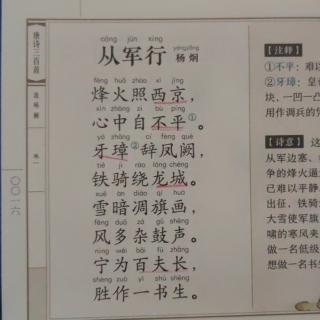 唐诗三百首
〇〇一六
cóng jūn xíng
从军行 杨炯
yáng jiǒng
fēng huǒ zhào xī jīng
烽火照西京，
xīn zhōng zì bù píng
心中自不平①。
yá zhāng cí fèng què
牙璋②辞凤阙，
tiě qí rào lóng chéng
铁骑绕龙城。
xuě àn diāo qí huà
雪暗凋旗画，
fēng duō zá gǔ shēng
风多杂鼓声。
nìng wéi bǎi fū zhǎng
宁为百夫长，
shèng zuò yì shū shēng
胜作一书生。
【注释】
①不平：难以
②牙璋：皇
块，一凹一凸
用作调兵的凭
【诗意】这
从军边塞、
争的烽火逼
已难以平静。
出征，铁骑
大雪使军旗
啸的寒风夹
做一名低级
想做一名书生